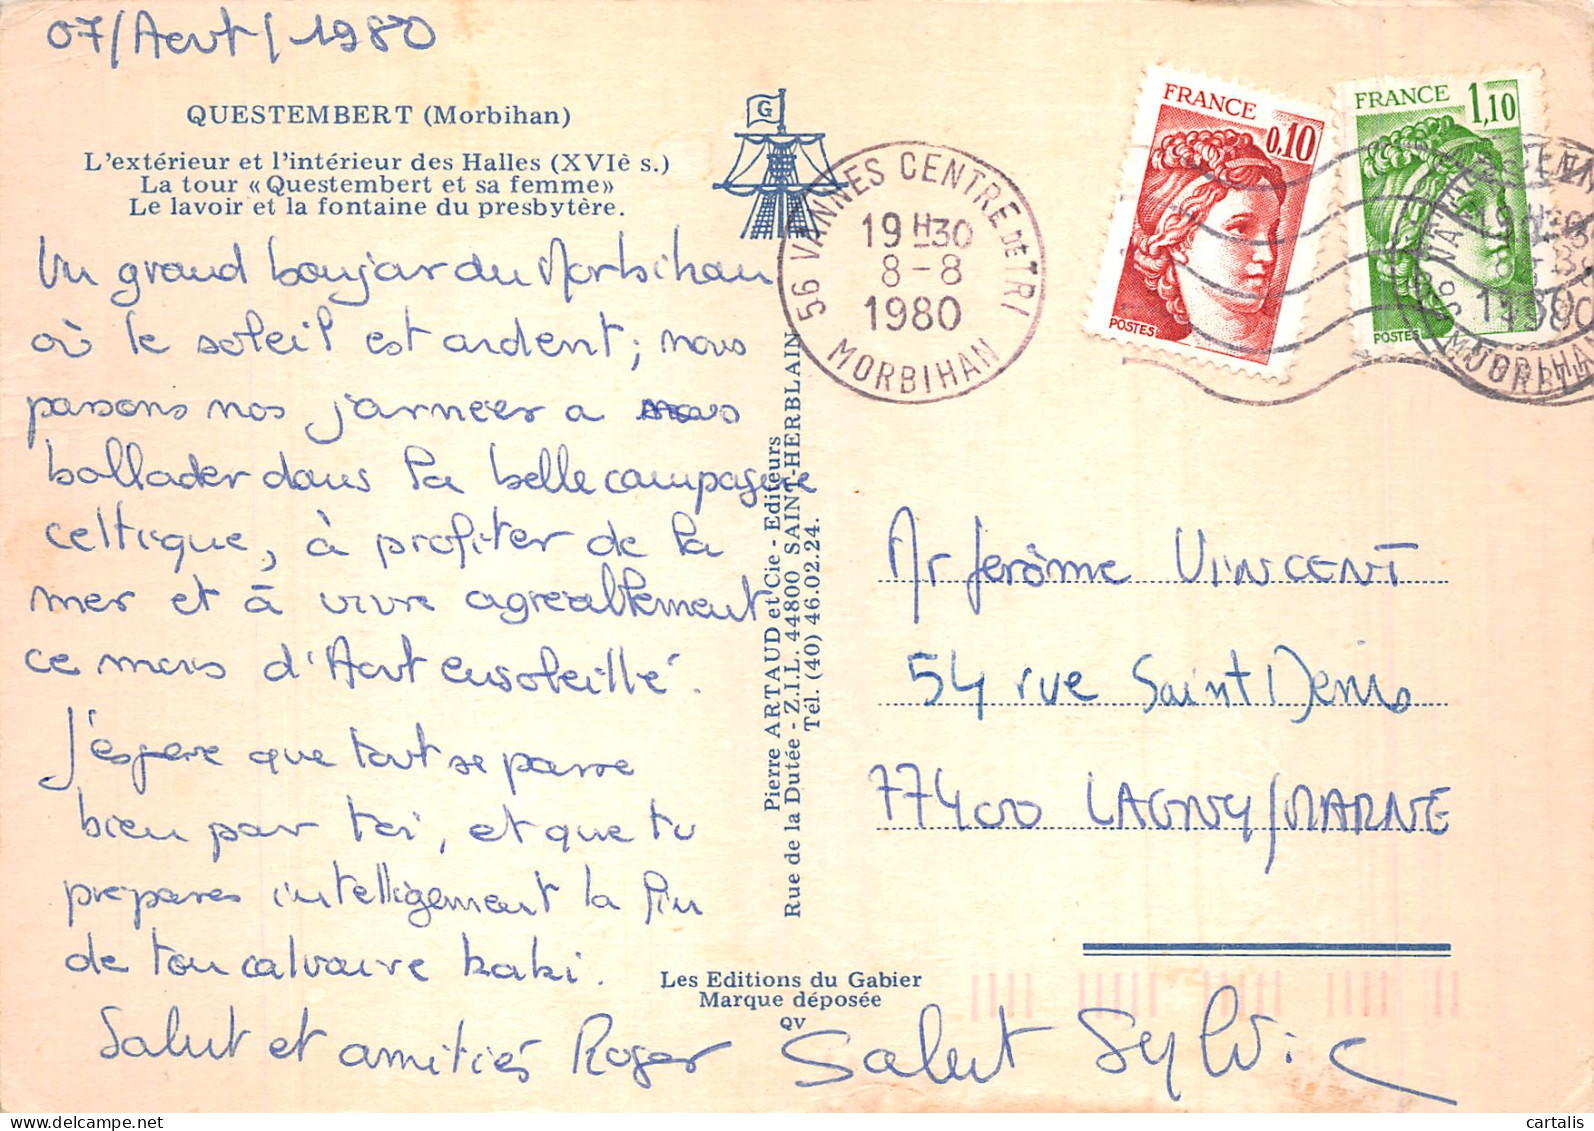 07/Aout/1980
QUESTEMBERT (Morbihan)
L'extérieur et l'intérieur des Halles (XVIè s.)
La tour «Questembert et sa femme»
Le lavoir et la fontaine du presbytère.
Un grand boujour du Morbihan
où le soleil est ardent; nous
passons nos journées a nous
ballader dans la belle campagne
celtique, à profiter de la
mer et à vivre agreablement
ce mois d'Aout ensoleillé.
J'espere que tout se passe
bien pour toi, et que tu
prepares intelligement la fin
de ton calvaire kaki.
Salut et amitiés Roger
Salut Sylvie
G
Pierre ARTAUD et Cie - Editeurs
Rue de la Dutée - Z.I.L. 44800 SAINT-HERBLAIN
Tél. (40) 46.02.24.
Les Editions du Gabier
Marque déposée
QV
56 VANNES CENTRE DE TRI
19 H 30
8-8
1980
MORBIHAN
FRANCE
0,10
POSTES
FRANCE
1,10
POSTES
19 H
1980
Mr Jerôme VINCENT
54 rue Saint Denis
77400 LAGNY/MARNE
cartalis